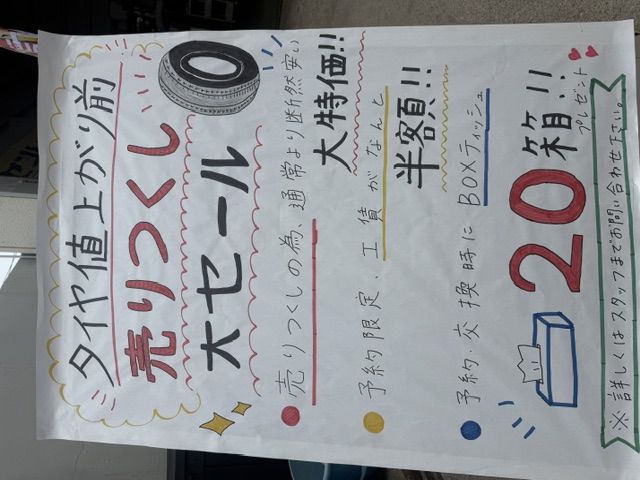 タイヤ値上がり前
売りつくし
大セール
売りつくしの為、通常より断然安い
大特価!!
予約限定、工賃がなんと
半額!!
予約・交換時にBOXティッシュ
20箱!!
プレゼント
※詳しくはスタッフまでお問い合わせ下さい。